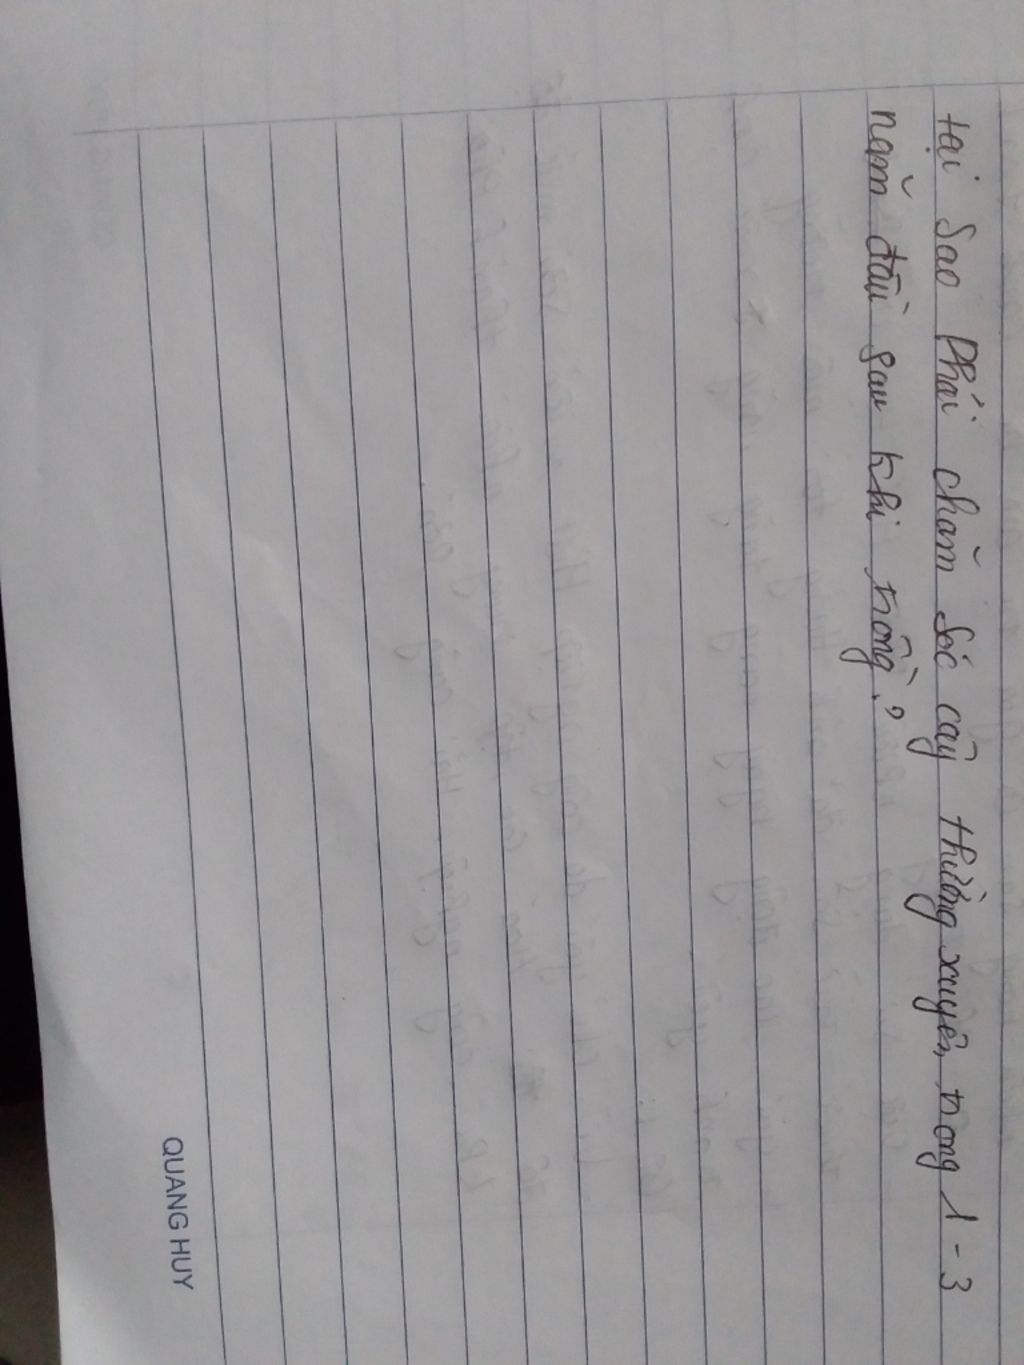 tại sao phải chăm sóc cây thường xuyên, trong 1 - 3
năm đầu sau khi trồng?
QUANG HUY